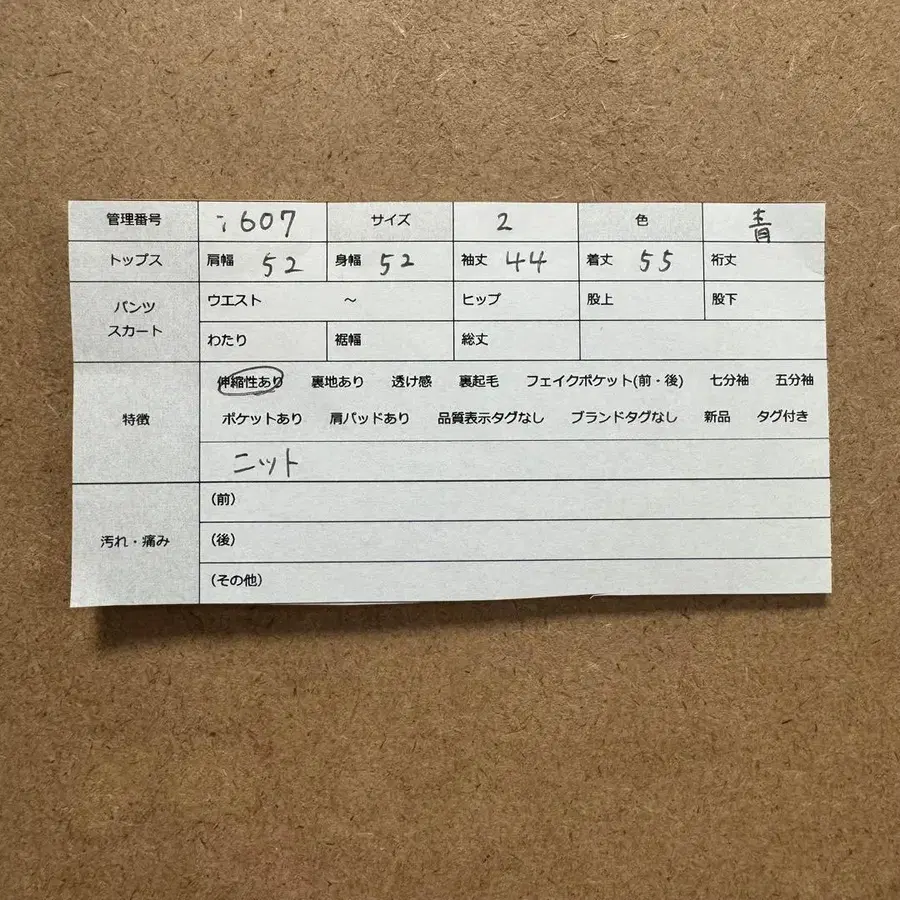 管理番号 i607 サイズ 2 色 青
トップス 肩幅 52 身幅 52 袖丈 44 着丈 55 裄丈
パンツ スカート ウエスト ～ ヒップ 股上 股下
わたり 裾幅 総丈
特徴 伸縮性あり 裏地あり 透け感 裏起毛 フェイクポケット(前・後) 七分袖 五分袖
ポケットあり 肩パッドあり 品質表示タグなし ブランドタグなし 新品 タグ付き
ニット
汚れ・痛み (前)
(後)
(その他)